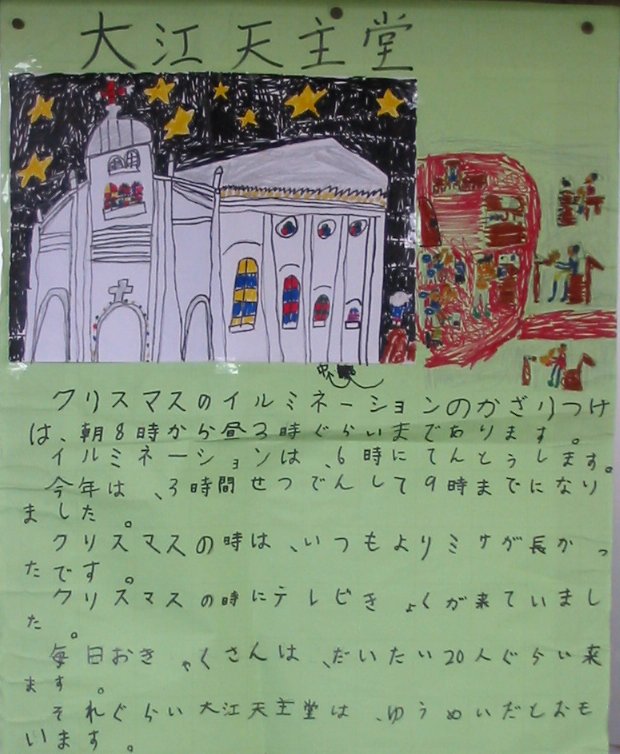 大江天主堂
中
クリスマスのイルミネーションのかざりつけ
は、朝8時から昼3時ぐらいまであります。
イルミネーションは、6時にてんとうします。
今年は、3時間せつでんして9時までになり
ました。
クリスマスの時は、いつもよりミサが長かっ
たです。
クリスマスの時にテレビきょくが来ていまし
た。
毎日おきゃくさんは、だいたい20人ぐらい来
ます。
それぐらい大江天主堂は、ゆうめいだとおも
います。